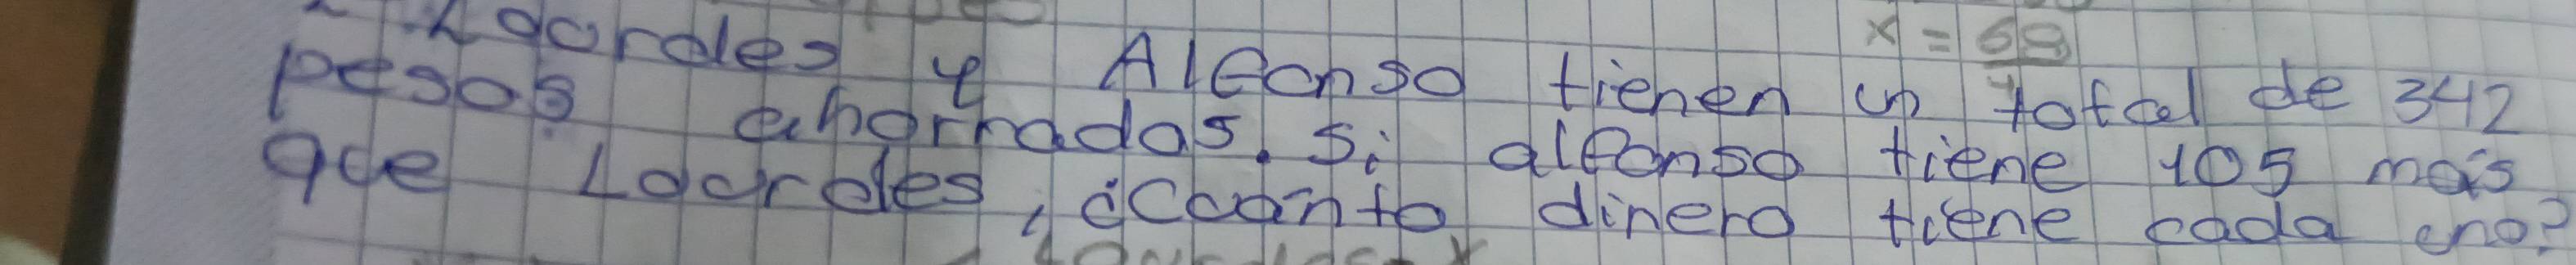 x = 68
Lourdes y Alfonso tienen un total de 342
pesos ahorrados. Si alfonso tiene 105 más
que Lourdes, ¿Cuánto dinero tiene cada uno?